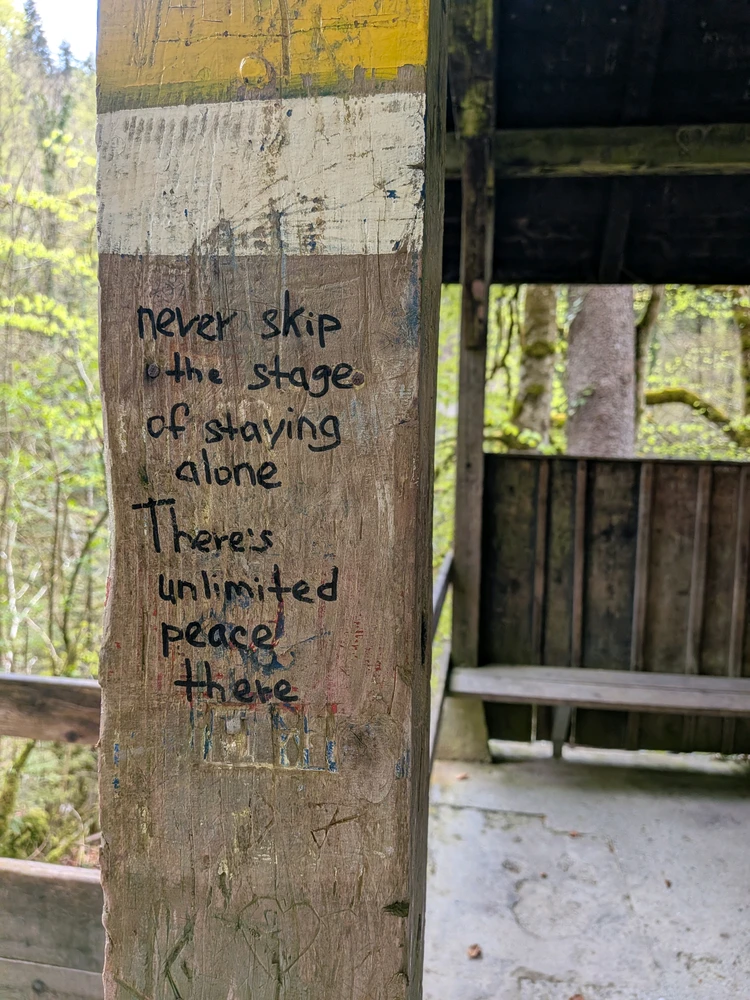 never skip
the stage
of staying
alone
There's
unlimited
peace
there